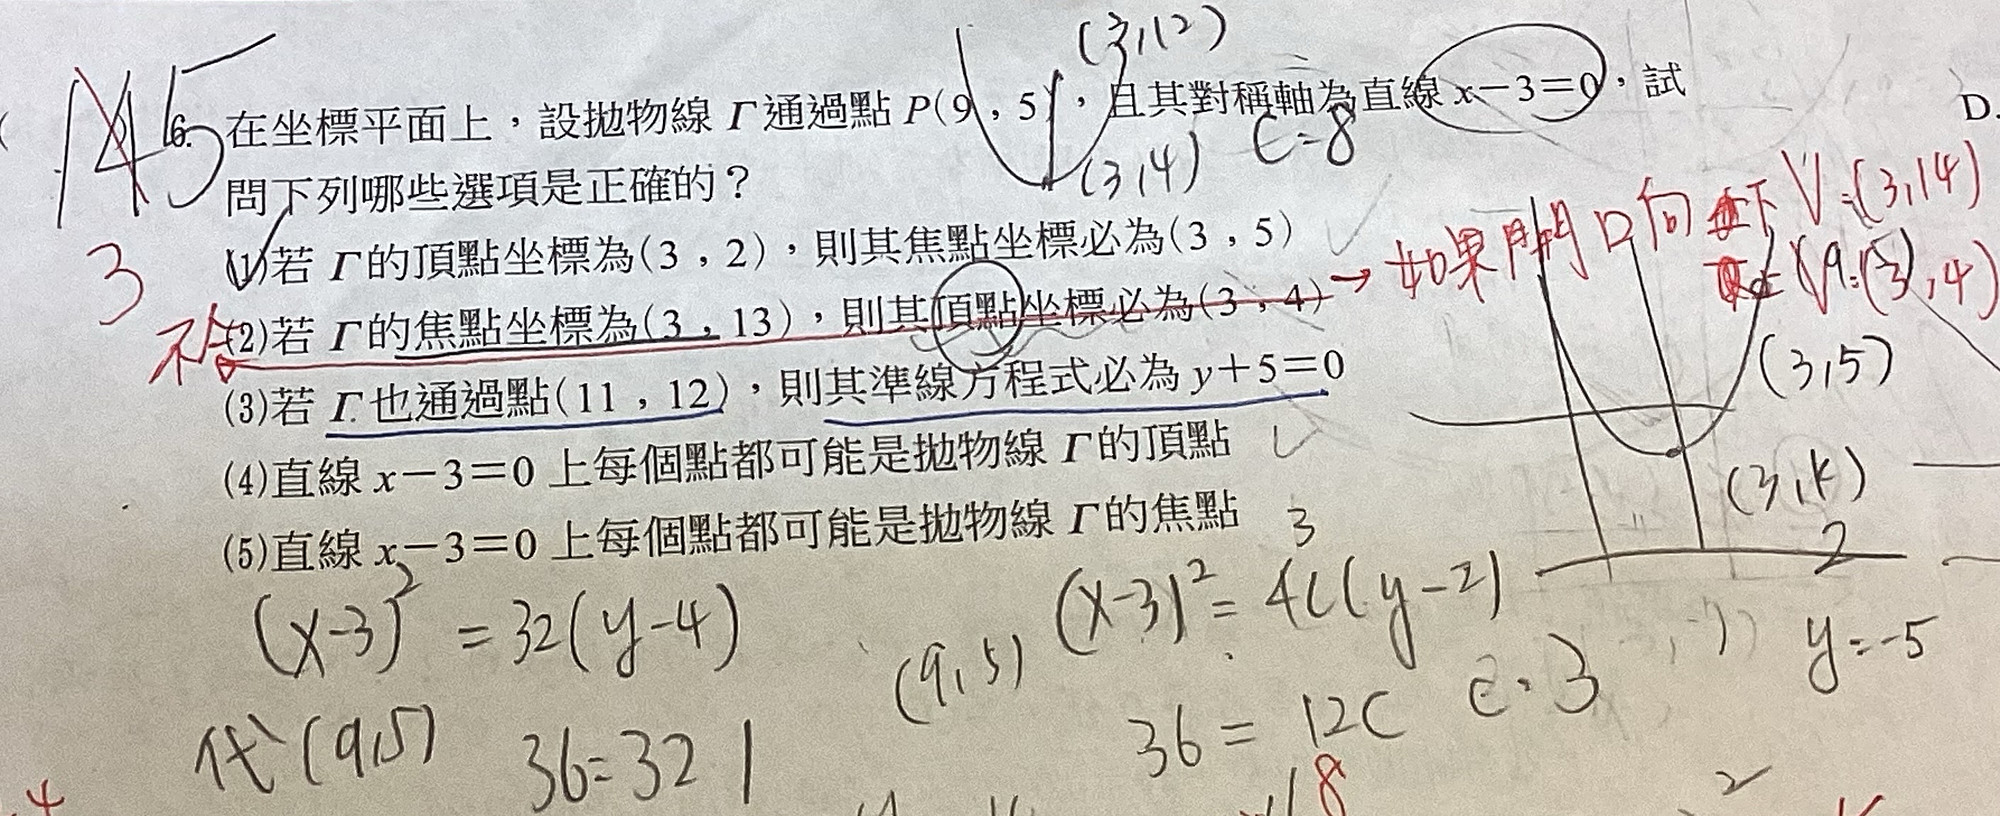 (3,12)
6. 在坐標平面上，設拋物線 Γ 通過點 P(9，5)，且其對稱軸為直線 x－3＝0，試
D.
145
(3,4) C=8
問下列哪些選項是正確的？
(1)若 Γ 的頂點坐標為(3，2)，則其焦點坐標必為(3，5)
→如果開口向下 V=(3,14)
3
(2)若 Γ 的焦點坐標為(3，13)，則其頂點坐標必為(3，4)
(3,5)
(3)若 Γ 也通過點(11，12)，則其準線方程式必為 y＋5＝0
(4)直線 x－3＝0 上每個點都可能是拋物線 Γ 的頂點
(3,k)
2
(5)直線 x－3＝0 上每個點都可能是拋物線 Γ 的焦點
3
(x-3)²=32(y-4)
(x-3)²=4C(y-2)
y=-5
(9,5)
代(9,5) 36=32
36=12C C=3
8
4